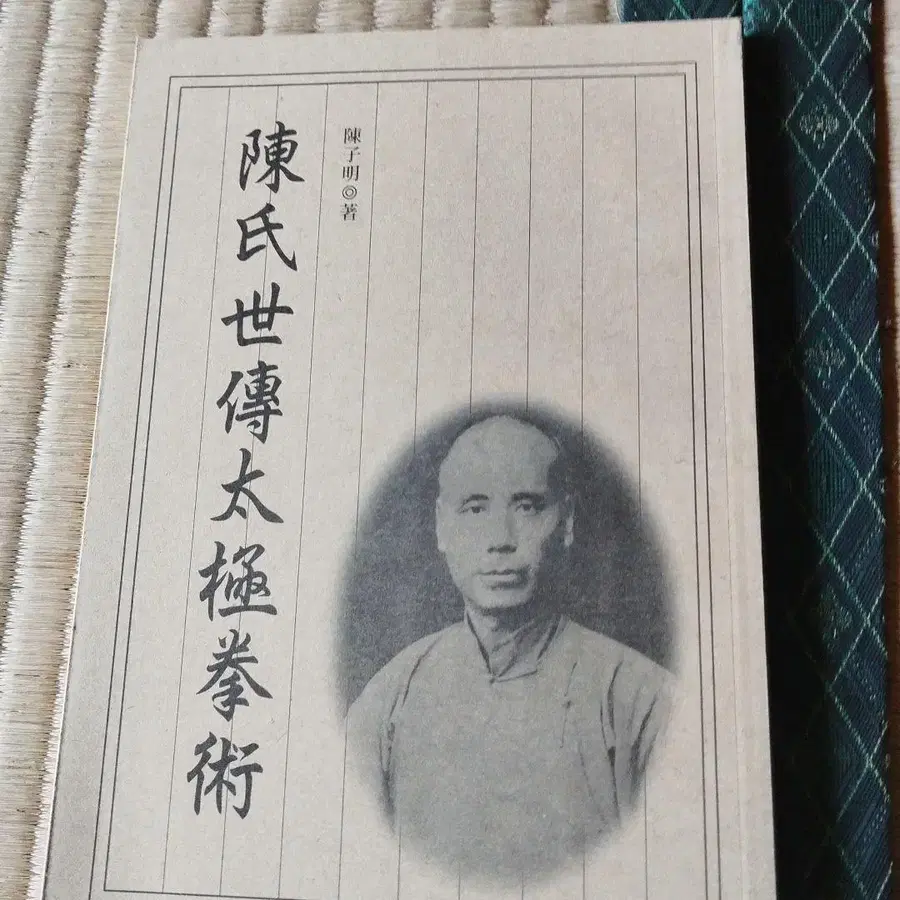 陳子明◎著
陳氏世傳太極拳術